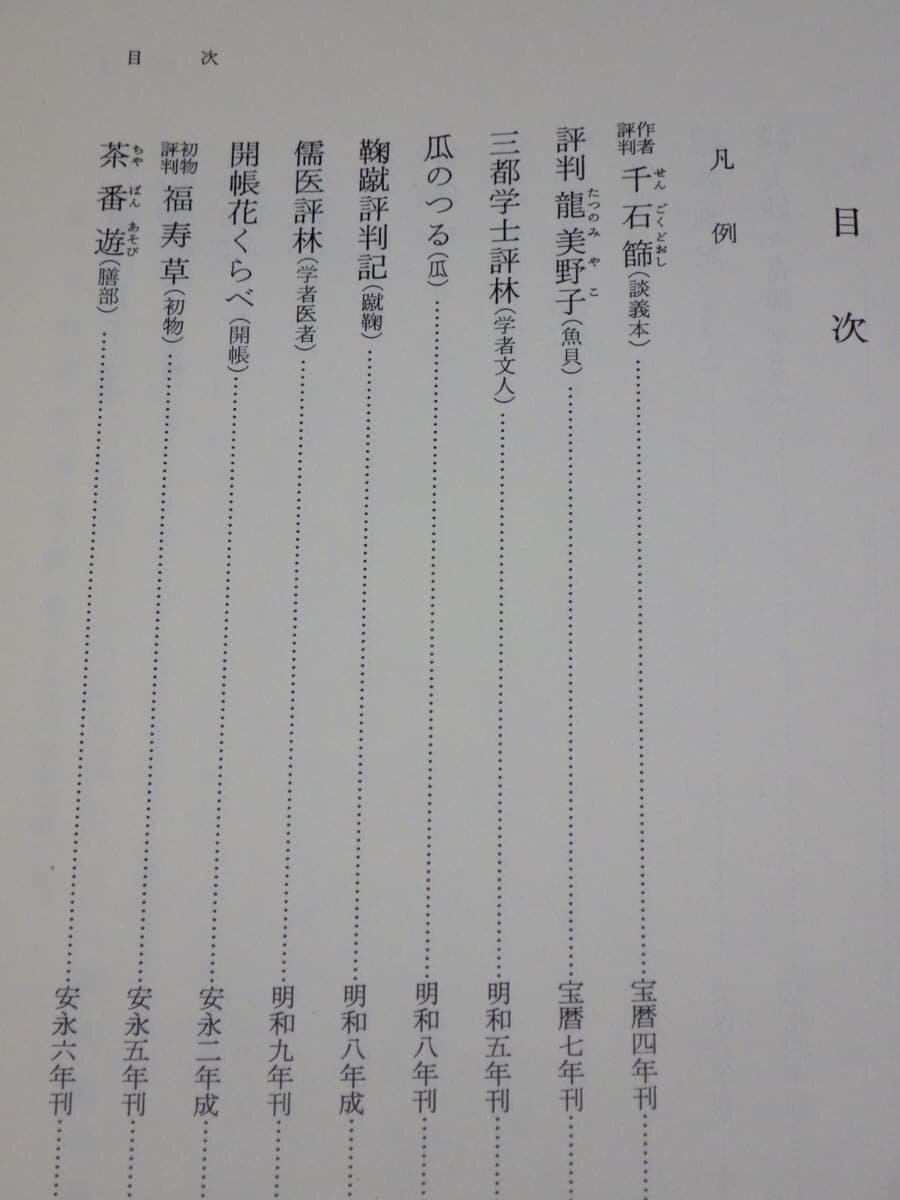 目次
目次
凡例
作者評判 千石篩（談義本）……宝暦四年刊……
せん ごくどおし
評判 龍美野子（魚貝）……宝暦七年刊……
たつのみ や こ
三都学士評林（学者文人）……明和五年刊……
瓜のつる（瓜）……明和八年刊……
鞠蹴評判記（蹴鞠）……明和八年成……
儒医評林（学者医者）……明和九年刊……
開帳花くらべ（開帳）……安永二年成……
初物評判 福寿草（初物）……安永五年刊……
茶番遊（膳部）……安永六年刊……
ちや ばん あそび